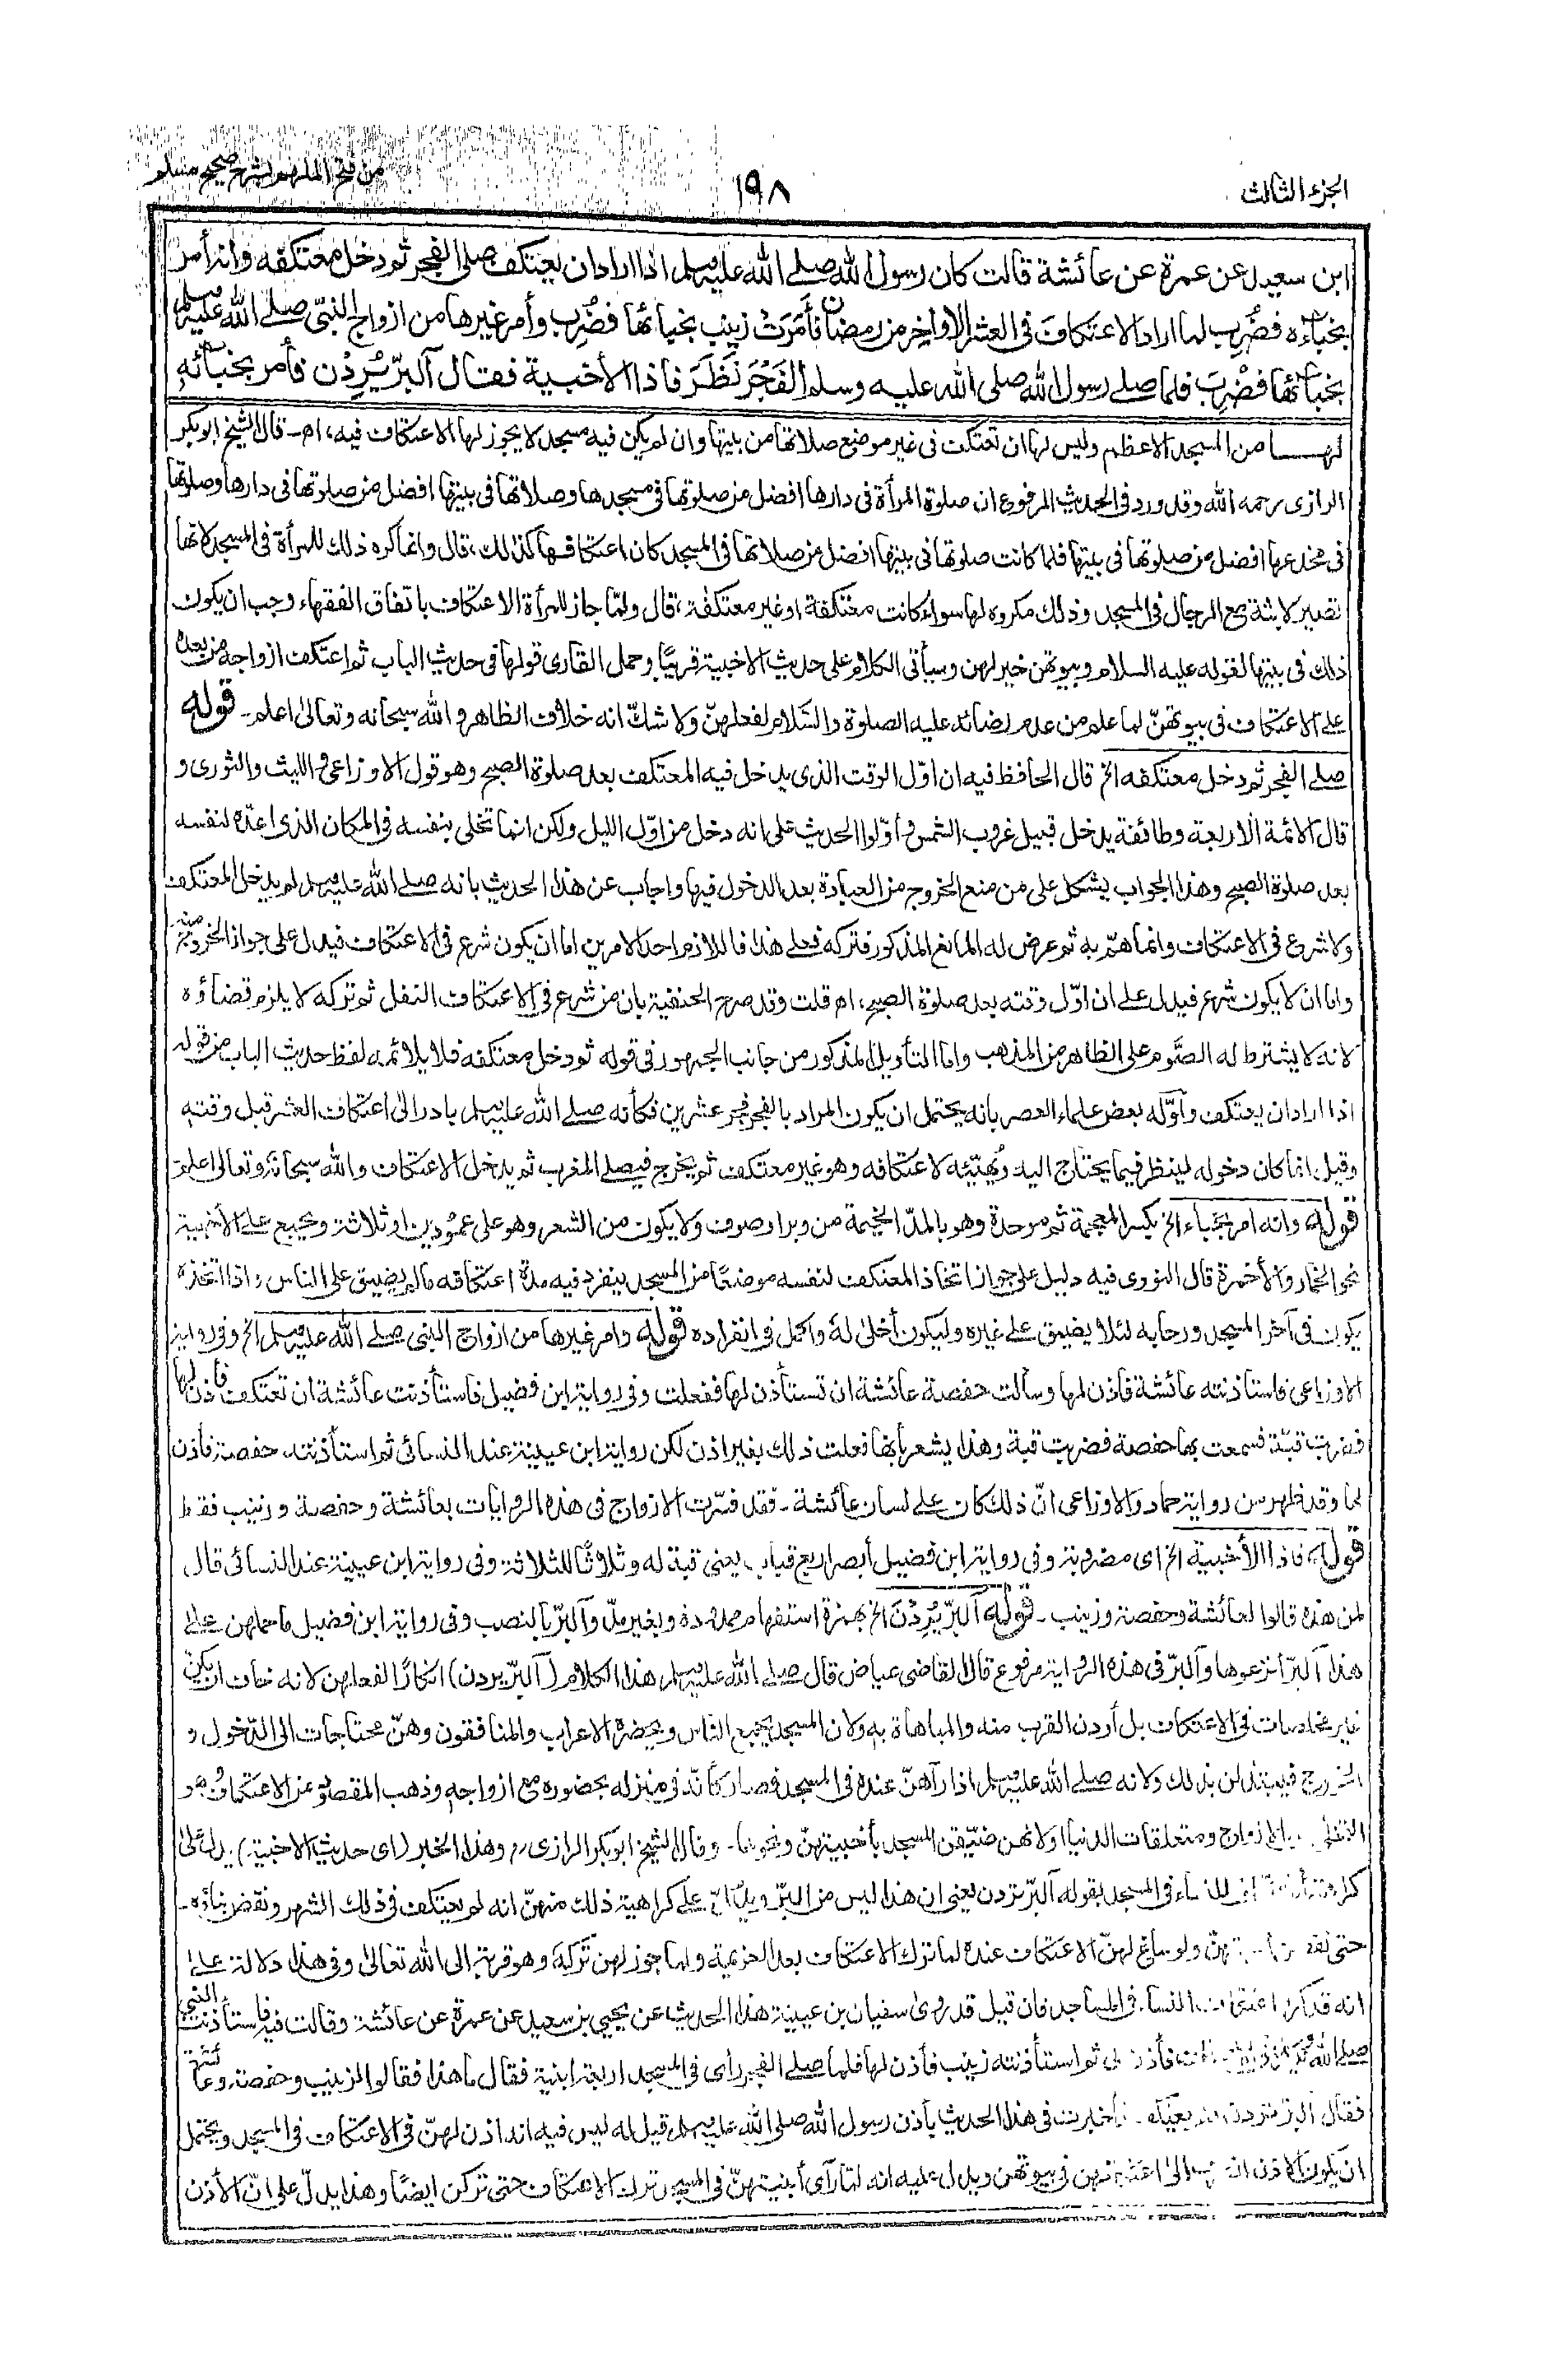 الجزء الثالث
١٩٨
من فتح الملهم بشرح صحيح مسلم
ابن سعيد عن عمرة عن عائشة قالت كان رسول الله صلى الله عليه وسلم اذا اراد ان يعتكف صلى الفجر ثم دخل معتكفه وانه أمر
بخبائه فضُرِب لما اراد الاعتكافَ فى العشر الاواخر من رمضان فأَمَرَتْ زينب بخبائها فضُرِب وأمر غيرها من ازواج النبيّ صلے الله عليه وسلم
بخبائها فضُرِبَ فلما صلے رسول الله صلى الله عليه وسلم الفَجْرَ نَظَرَ فاذا الأخبية فقال آلبرّ يُرِدْن فأمر بخبائه
لهــا من المسجد الاعظم وليس لها ان تعتكف فى غير موضع صلاتها من بيتها وان لم يكن فيه مسجد لا يجوز لها الاعتكاف فيه، اھ۔ قال الشيخ ابوبكر
الرازى رحمه الله وقد ورد فى الحديث المرفوع ان صلوة المرأة فى دارها افضل من صلوتها فى مسجدها وصلاتها فى بيتها افضل من صلوتها فى دارها وصلوتها
فى مخدعها افضل من صلوتها فى بيتها فلما كانت صلوتها فى بيتها افضل من صلاتها فى المسجد كان اعتكافها كذلك، قال وانما كره ذلك للمرأة فى المسجد لانها
تصير لابثة مع الرجال فى المسجد وذلك مكروه لها سواء كانت معتكفة او غير معتكفة، قال ولمّا جاز للمرأة الاعتكاف باتفاق الفقهاء وجب ان يكون
ذلك فى بيتها لقوله عليه السلام وبيوتهن خير لهن وسيأتى الكلام على حديث الاخبية قريبًا وحمل القارى قولها فى حديث الباب ثم اعتكف ازواجه من بعده
على الاعتكاف فى بيوتهنّ لما علم من عدم رضائه عليه الصلوة والسّلام لفعلهنّ ولا شكّ انه خلاف الظاهر والله سبحانه وتعالىٰ اعلم۔ قوله
صلے الفجر ثم دخل معتكفه الخ قال الحافظ فيه ان اوّل الوقت الذى يدخل فيه المعتكف بعد صلوة الصبح وهو قول الاوزاعى والليث والثورى و
قال الائمة الاربعة وطائفة يدخل قبيل غروب الشمس وأوّلوا الحديث على انه دخل من اوّل الليل ولكن انما تخلى بنفسه فى المكان الذى اعدّه لنفسه
بعد صلوة الصبح وهذا الجواب يشكل على من منع الخروج من العبادة بعد الدخول فيها واجاب عن هذا الحديث بانه صلے الله عليه وسلم لم يدخل المعتكف
ولا شرع فى الاعتكاف وانما همّ به ثم عرض له المانع المذكور فتركه فعلى هذا فاللازم احد الامرين اما ان يكون شرع فى الاعتكاف فيدل على جواز الخروج منه
واما ان لا يكون شرع فيدل على ان اوّل وقته بعد صلوة الصبح، اھ قلت وقد صرح الحنفية بان من شرع فى الاعتكاف النفل ثم تركه لا يلزم قضاؤه
لانه لا يشترط له الصَّوم على الظاهر من المذهب واما التأويل المذكور من جانب الجمهور فى قوله ثم دخل معتكفه فلا يلائمه لفظ حديث الباب من قوله
اذا اراد ان يعتكف وأوّله بعض علماء العصر بانه يحتمل ان يكون المراد بالفجر فجر عشرين فكأنه صلے الله عليه وسلم بادر الىٰ اعتكاف العشر قبل وقته
وقيل انما كان دخوله لينظر فيما يحتاج اليه ويُهيّئه لاعتكافه وهو غير معتكف ثم يخرج فيصلے المغرب ثم يدخل الاعتكاف والله سبحانه وتعالى اعلم
قوله وانه امر بخباء الخ بكسر المعجمة ثم موحدة وهو بالمدّ الخيمة من وبر او صوف ولا يكون من الشعر وهو على عمودين او ثلاثة ويجمع على الاخبية
نحو الخمار والأخمرة قال النووى فيه دليل على جواز اتخاذ المعتكف لنفسه موضعًا من المسجد ينفرد فيه مدة اعتكافه مالم يضيق على الناس واذا اتخذه
يكون فى آخر المسجد ورحابه لئلا يضيق على غيره وليكون أخلىٰ لهٗ واكمل فى انفراده قوله وامر غيرها من ازواج النبى صلے الله عليه وسلم الخ وفى رواية
الاوزاعى فاستأذنته عائشة فأذن لها وسألت حفصة عائشة ان تستأذن لها ففعلت وفى رواية ابن فضيل فاستأذنت عائشة ان تعتكف فأذن لها
فضربت قبّة فسمعت بها حفصة فضربت قبة وهذا يشعر بأنها فعلت ذلك بغير اذن لكن رواية ابن عيينة عند النسائى ثم استأذنته حفصة فأذن
لها وقد ظهر من رواية حماد والاوزاعى انّ ذلك كان على لسان عائشة۔ فقد فسّرت الازواج فى هذه الروايات بعائشة وحفصة وزينب فقط
قوله فاذا الأخبية الخ اى مضروبة وفى رواية ابن فضيل أبصر اربع قباب يعنى قبة له وثلاثًا للثلاثة وفى رواية ابن عيينة عند النسائى قال
لمن هذه قالوا لعائشة وحفصة وزينب۔ قوله آلبرّ يُرِدْنَ الخ بهمزة استفهام ممدودة وبغير مدّ وآلبرّ بالنصب وفى رواية ابن فضيل ما حملهن على
هذا آلبرّ انزعوها وآلبرّ فى هذه الرواية مرفوع قال القاضى عياض قال صلے الله عليه وسلم هذا الكلام (آلبرّ يردن) انكارًا لفعلهن لانه خاف ان يكنّ
غير مخلصات فى الاعتكاف بل أردن القرب منه والمباهاة به ولان المسجد يجمع الناس ويحضره الاعراب والمنافقون وهنّ محتاجات الى الدّخول و
الخروج فيبتذلن بذلك ولانه صلے الله عليه وسلم اذا رآهنّ عنده فى المسجد فصار كأنّه فى منزله بحضوره مع ازواجه وذهب المقصود من الاعتكاف وهو
التخلى الازواج ومتعلقات الدنيا او لانهن ضيّقن المسجد بأخبيتهنّ ونحوها۔ وقال الشيخ ابوبكر الرازى رہ وهذا الخبر (اى حديث الاخبية) يدل علىٰ
للنساء فى المسجد بقوله آلبرّ تردن يعنى ان هذا ليس من البرّ ويدلّ علىٰ كراهية ذلك منهنّ انه لم يعتكف فى ذلك الشهر ونقض بناؤه۔
حتى ولو ساغ لهنّ الاعتكاف عنده لما ترك الاعتكاف بعد العزيمة ولما جوز لهن تَركهٗ وهو قربة الى الله تعالىٰ وفى هذا دلالة علىٰ
انه قد كره النساء فى المساجد فان قيل قد روىٰ سفيان بن عيينة هذا الحديث عن يحيى بن سعيد عن عمرة عن عائشة وقالت فيه فاستأذنت النبى
صلى الله فأذن لى ثم استأذنته زينب فأذن لها فلما صلے الفجر رأى فى المسجد اربعة ابنية فقال ما هذا فقالوا لزينب وحفصة وعائشة
فقال آلبر تردن فأخبرت فى هذا الحديث بأذن رسول الله صلى الله عليه وسلم قيل له ليس فيه انه اذن لهنّ فى الاعتكاف فى المسجد ويحتمل
ان يكون الاذن الىٰ فى بيوتهن ويدل عليه انه لمّا رآى أبنيتهنّ فى المسجد ترك الاعتكاف حتى تركن ايضًا وهذا يدلّ على انّ الأذن